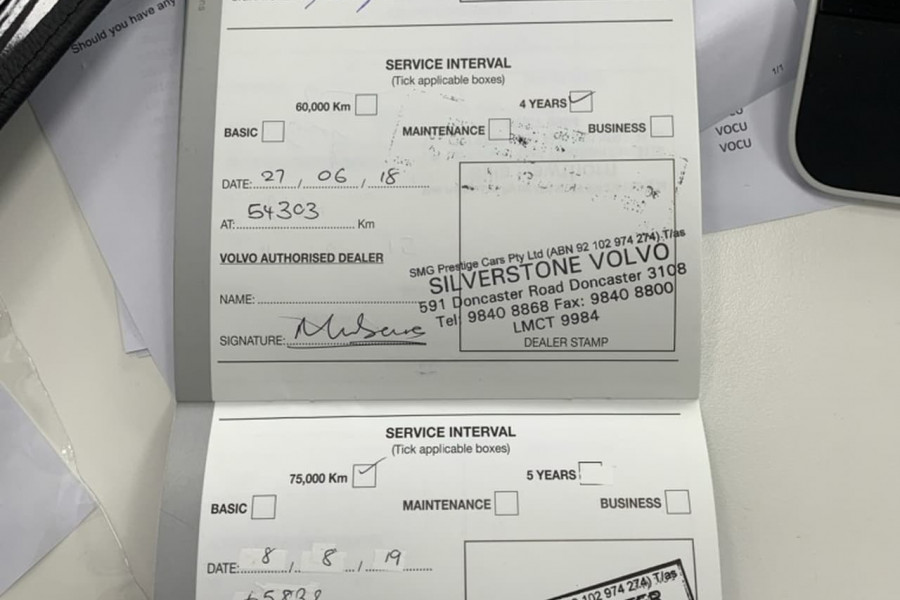 Should you have any
1/1
VOCU
VOCU
SERVICE INTERVAL
(Tick applicable boxes)
60,000 Km 4 YEARS
BASIC MAINTENANCE BUSINESS
DATE: 27 / 06 / 18
AT: 54303 Km
VOLVO AUTHORISED DEALER
NAME:
SIGNATURE:
SMG Prestige Cars Pty Ltd (ABN 92 102 974 274) T/as
SILVERSTONE VOLVO
591 Doncaster Road Doncaster 3108
Tel: 9840 8868 Fax: 9840 8800
LMCT 9984
DEALER STAMP
SERVICE INTERVAL
(Tick applicable boxes)
75,000 Km 5 YEARS
BASIC MAINTENANCE BUSINESS
DATE: 8 / 8 / 19
102 974 274) T/as